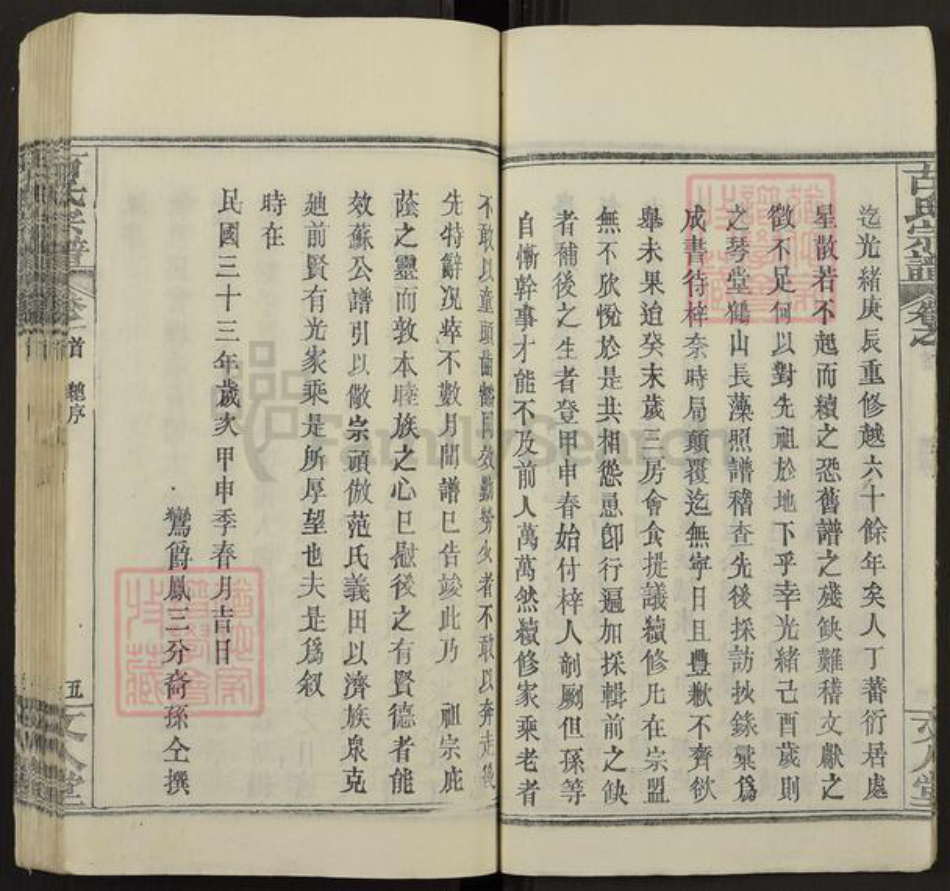 迄光緒庚辰重修越六十餘年矣人丁蕃衍居處
星散若不起而續之恐舊譜之殘缺難稽文獻之
徵不足何以對先祖於地下乎幸光緒己酉歲則
之琴堂鶴山長藻照譜稽查先後採訪抄錄彙爲
成書待梓奈時局顛覆迄無寧日且豐歉不齊欲
舉未果迨癸未歲三房會食提議續修凡在宗盟
無不欣悅於是共相慫恿卽行遍加採輯前之缺
者補後之生者登甲申春始付梓人剞劂但孫等
自慚幹事才能不及前人萬萬然續修家乘老者
不敢以童頭齒豁同效勤勞少者不敢以奔走後
先特辭况瘁不數月間譜已告竣此乃 祖宗庇
蔭之靈而敦本睦族之心已慰後之有賢德者能
效蘇公譜引以儆宗頑倣范氏義田以濟族衆克
廸前賢有光家乘是所厚望也夫是爲叙
時在
民國三十三年歲次甲申季春月吉日
鸞爵鳳三分裔孫仝撰
氏宗譜
首
總序
五
文人堂
FamilySearch